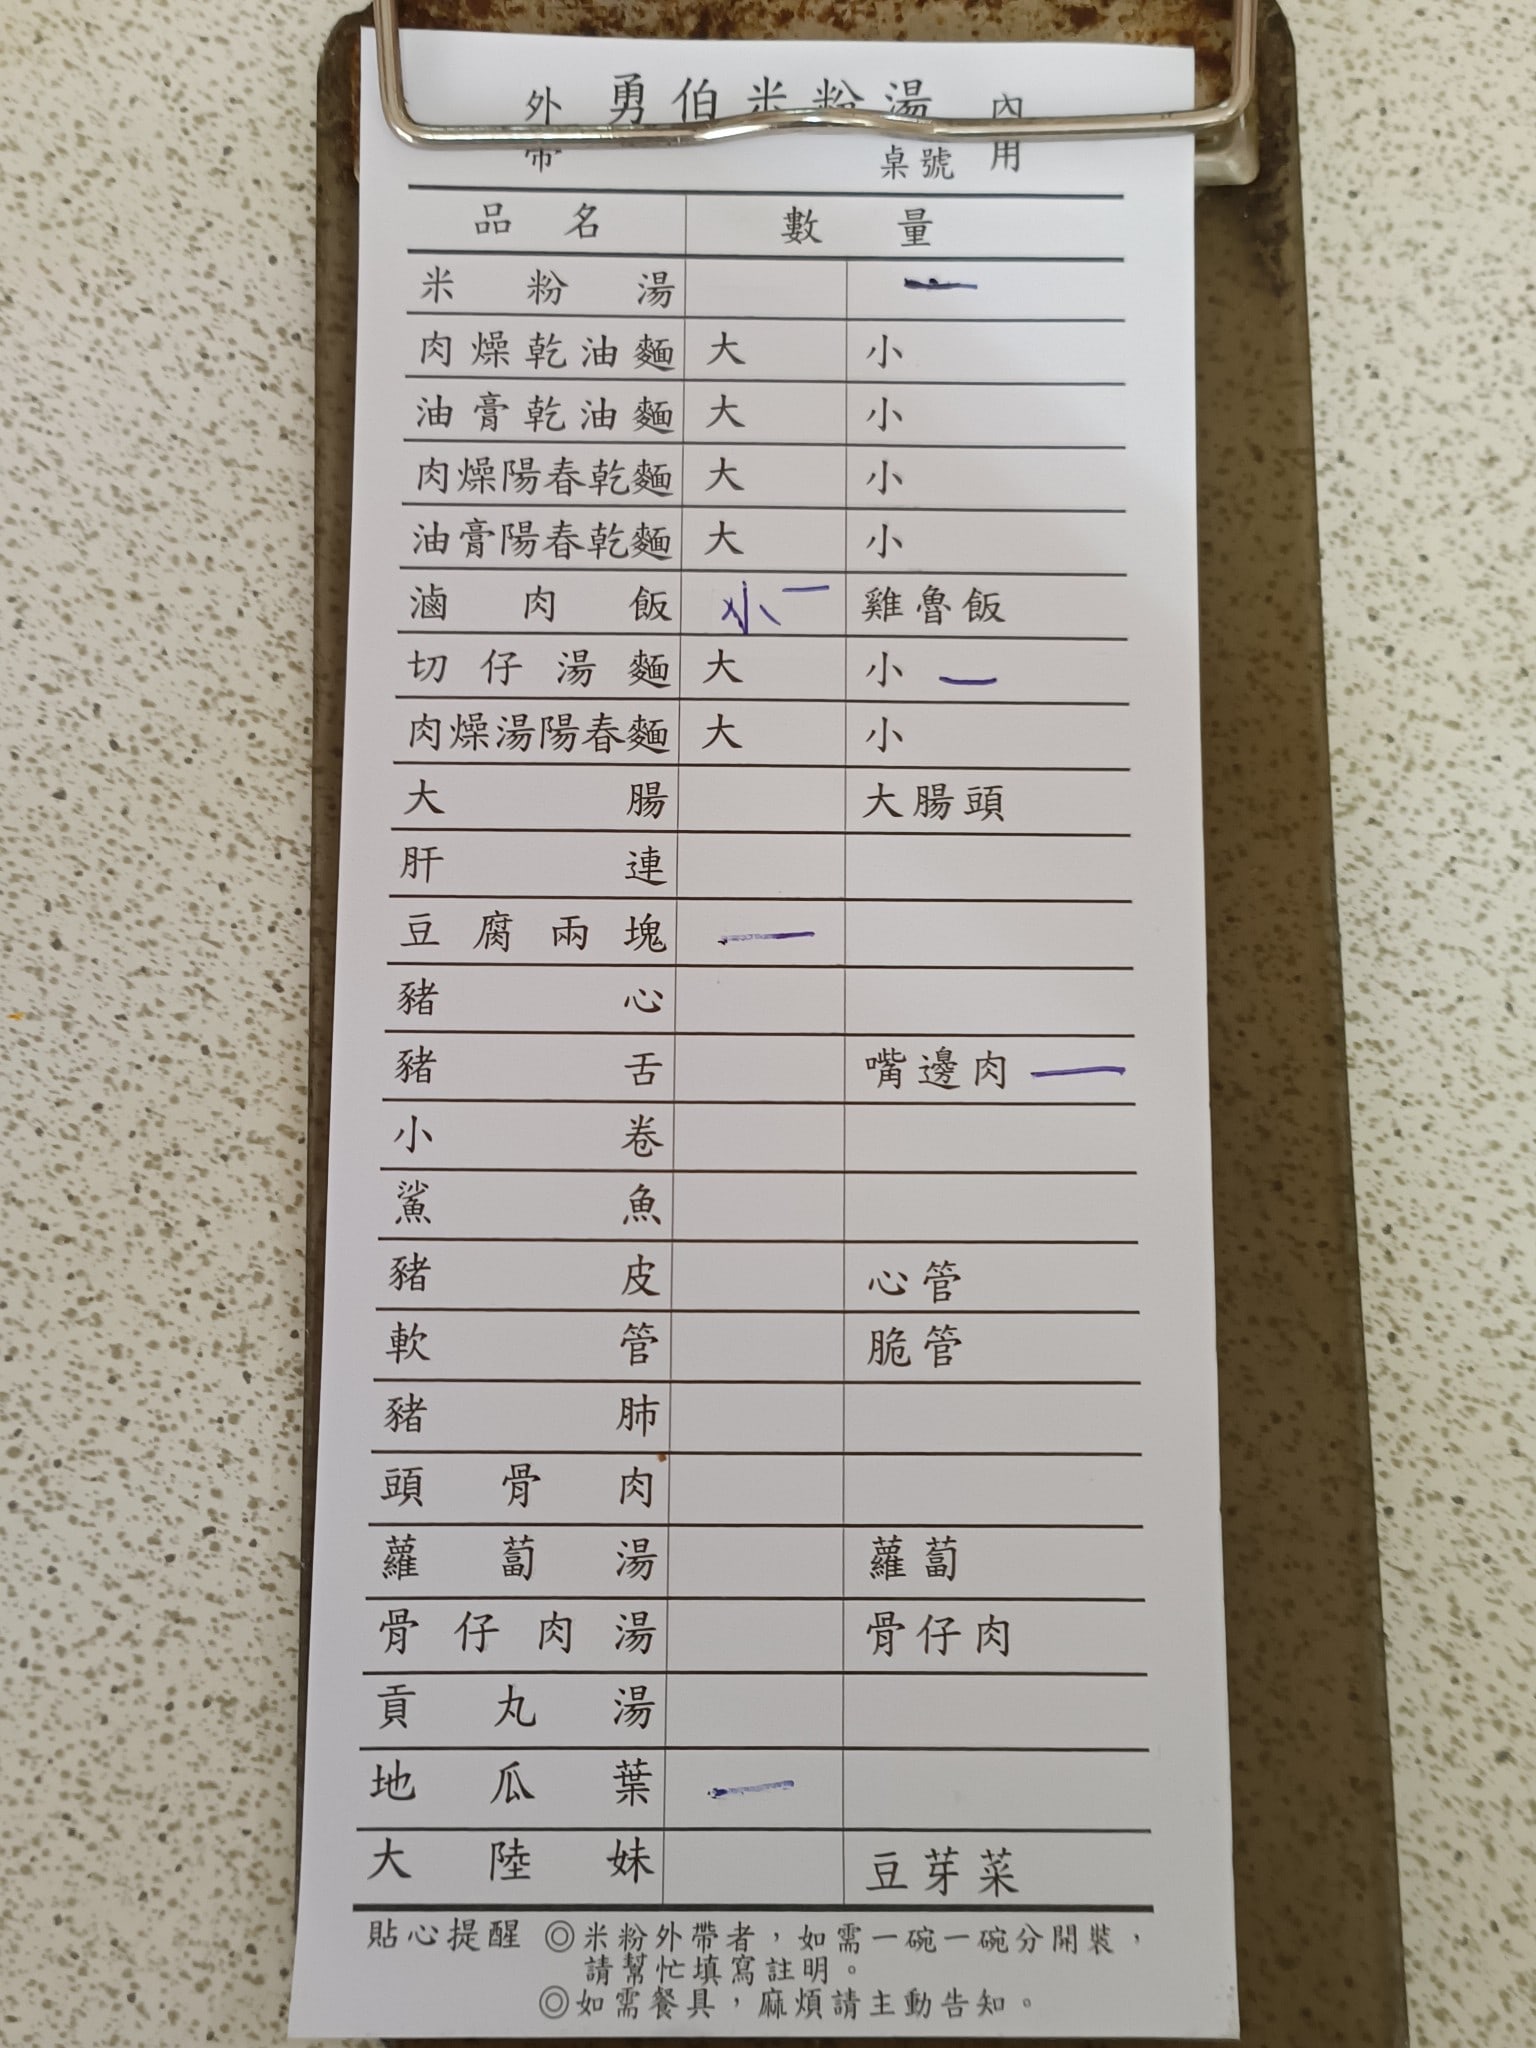 外帶 勇伯米粉湯 內用
桌號
品名 數量
米粉湯 一
肉燥乾油麵 大 小
油膏乾油麵 大 小
肉燥陽春乾麵 大 小
油膏陽春乾麵 大 小
滷肉飯 小 一 雞魯飯
切仔湯麵 大 小 一
肉燥湯陽春麵 大 小
大腸 大腸頭
肝連
豆腐兩塊 一
豬心
豬舌 嘴邊肉 一
小卷
鯊魚
豬皮 心管
軟管 脆管
豬肺
頭骨肉
蘿蔔湯 蘿蔔
骨仔肉湯 骨仔肉
貢丸湯
地瓜葉 一
大陸妹 豆芽菜
貼心提醒 ◎米粉外帶者，如需一碗一碗分開裝，
請幫忙填寫註明。
◎如需餐具，麻煩請主動告知。